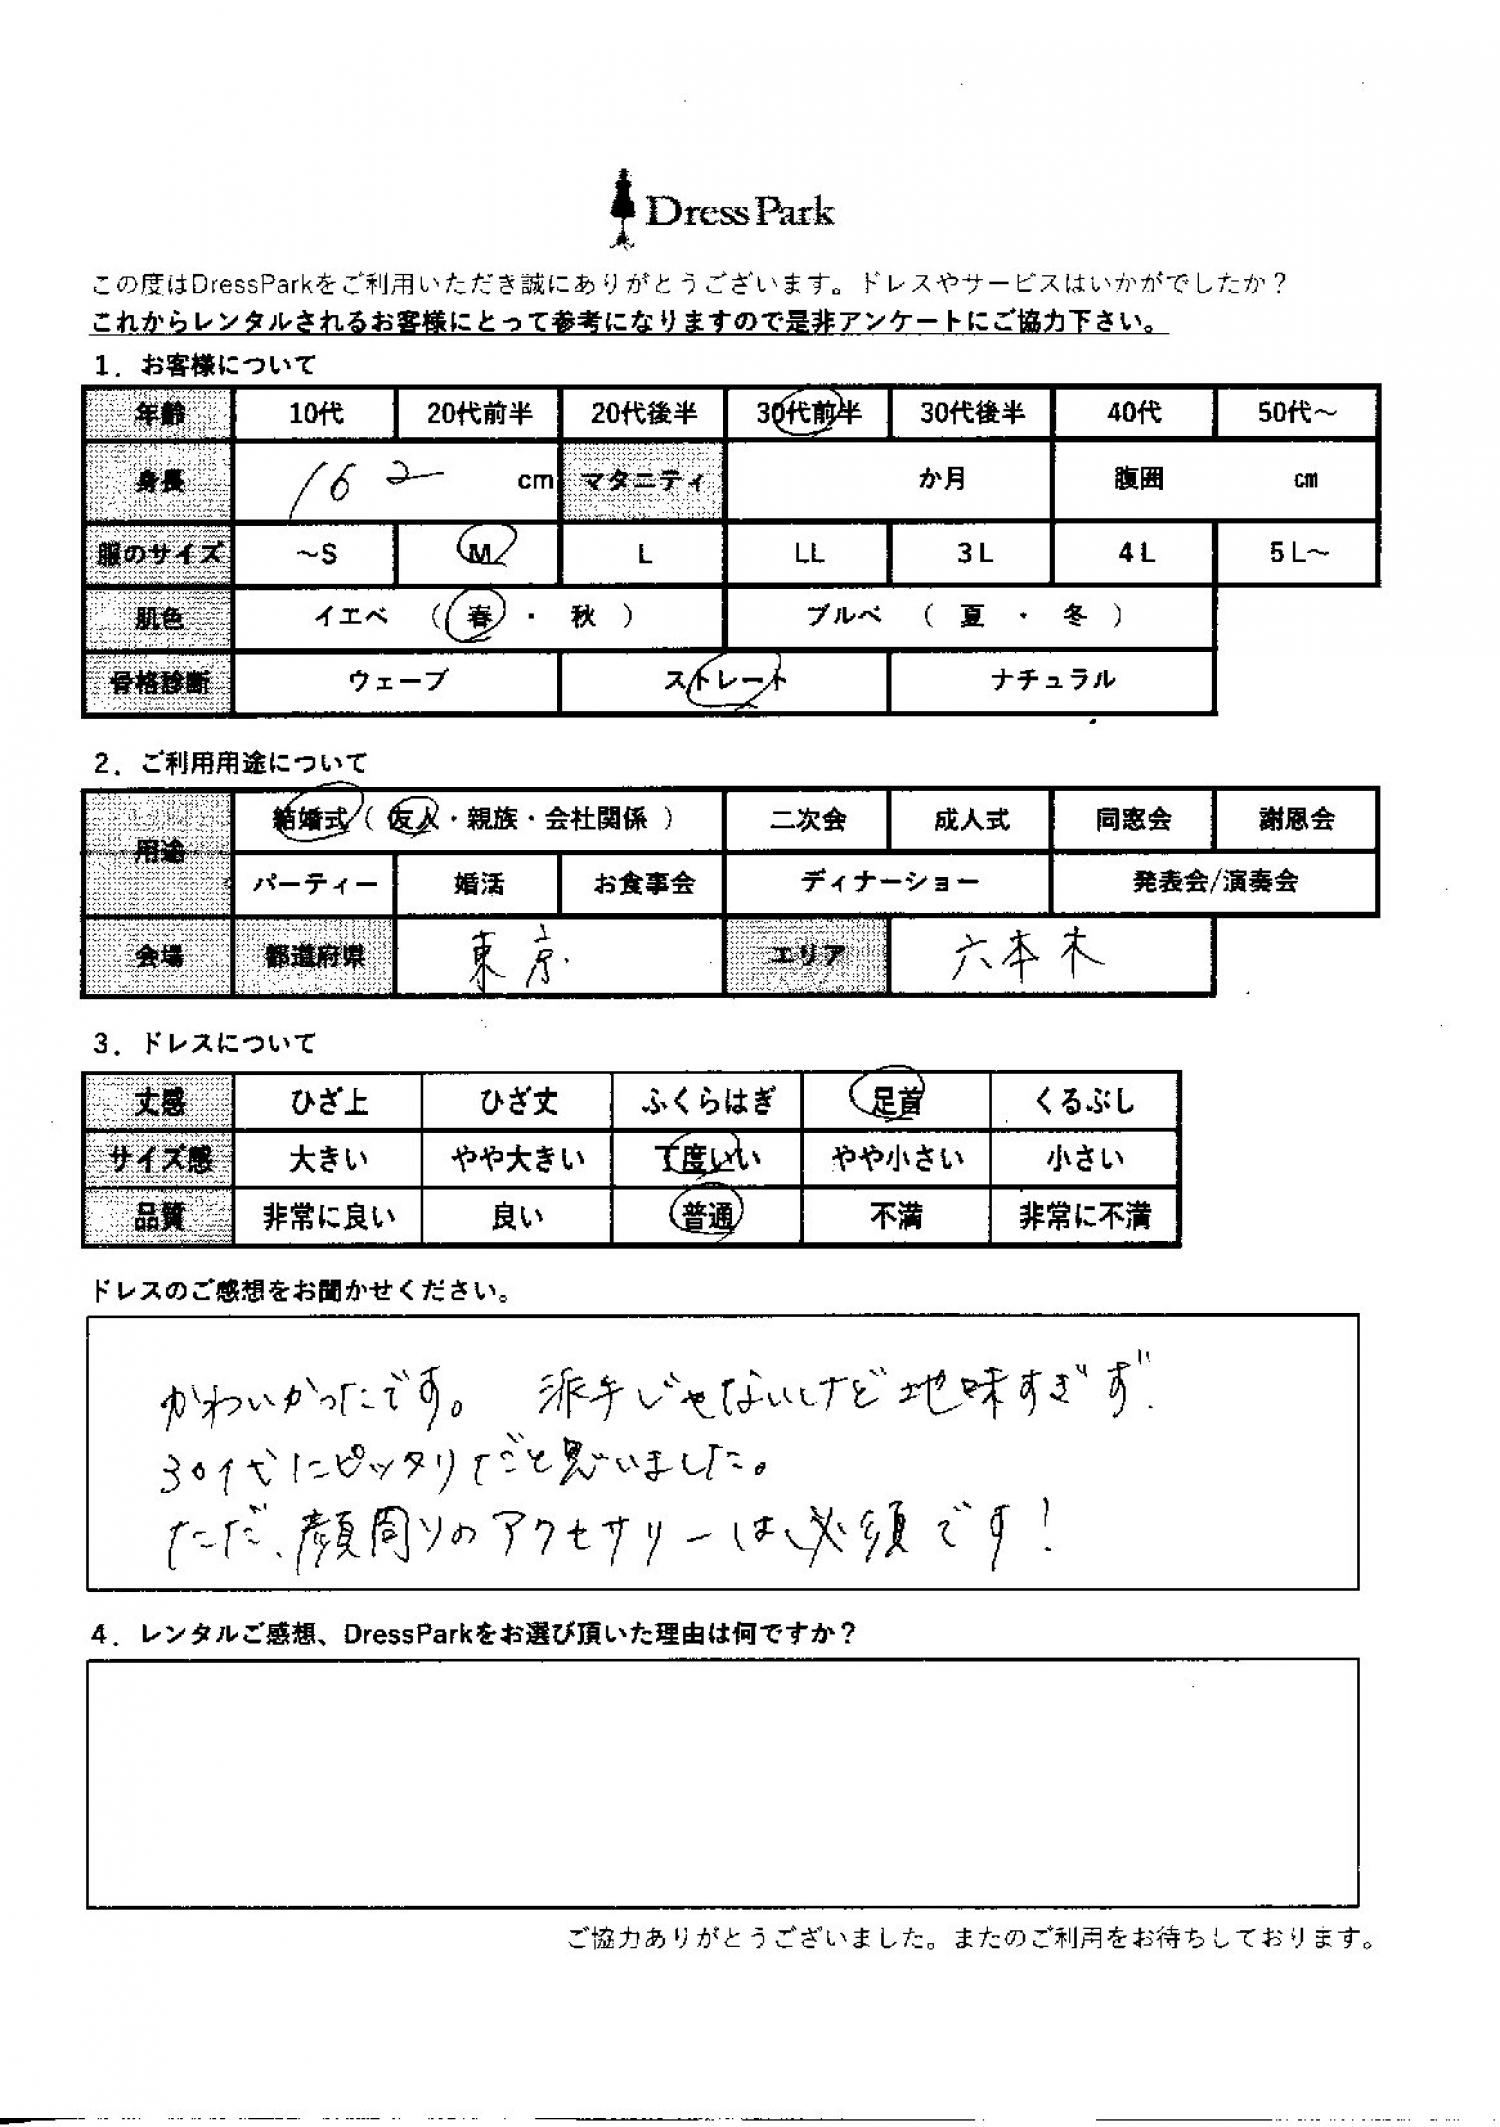 DressPark
この度はDressParkをご利用いただき誠にありがとうございます。ドレスやサービスはいかがでしたか？
これからレンタルされるお客様にとって参考になりますので是非アンケートにご協力下さい。
1．お客様について
年齢 10代 20代前半 20代後半 30代前半 30代後半 40代 50代～
身長 162 cm マタニティ か月 腹囲 cm
服のサイズ ～S M L LL 3L 4L 5L～
肌色 イエベ （ 春 ・ 秋 ） ブルベ （ 夏 ・ 冬 ）
骨格診断 ウェーブ ストレート ナチュラル
2．ご利用用途について
用途 結婚式（ 友人・親族・会社関係 ） 二次会 成人式 同窓会 謝恩会
パーティー 婚活 お食事会 ディナーショー 発表会/演奏会
会場 都道府県 東京 エリア 六本木
3．ドレスについて
丈感 ひざ上 ひざ丈 ふくらはぎ 足首 くるぶし
サイズ感 大きい やや大きい 丁度いい やや小さい 小さい
品質 非常に良い 良い 普通 不満 非常に不満
ドレスのご感想をお聞かせください。
かわいかったです。 派手じゃないけど地味すぎず、
30代にピッタリだと思いました。
ただ、顔周りのアクセサリーは必須です！
4．レンタルご感想、DressParkをお選び頂いた理由は何ですか？
ご協力ありがとうございました。またのご利用をお待ちしております。